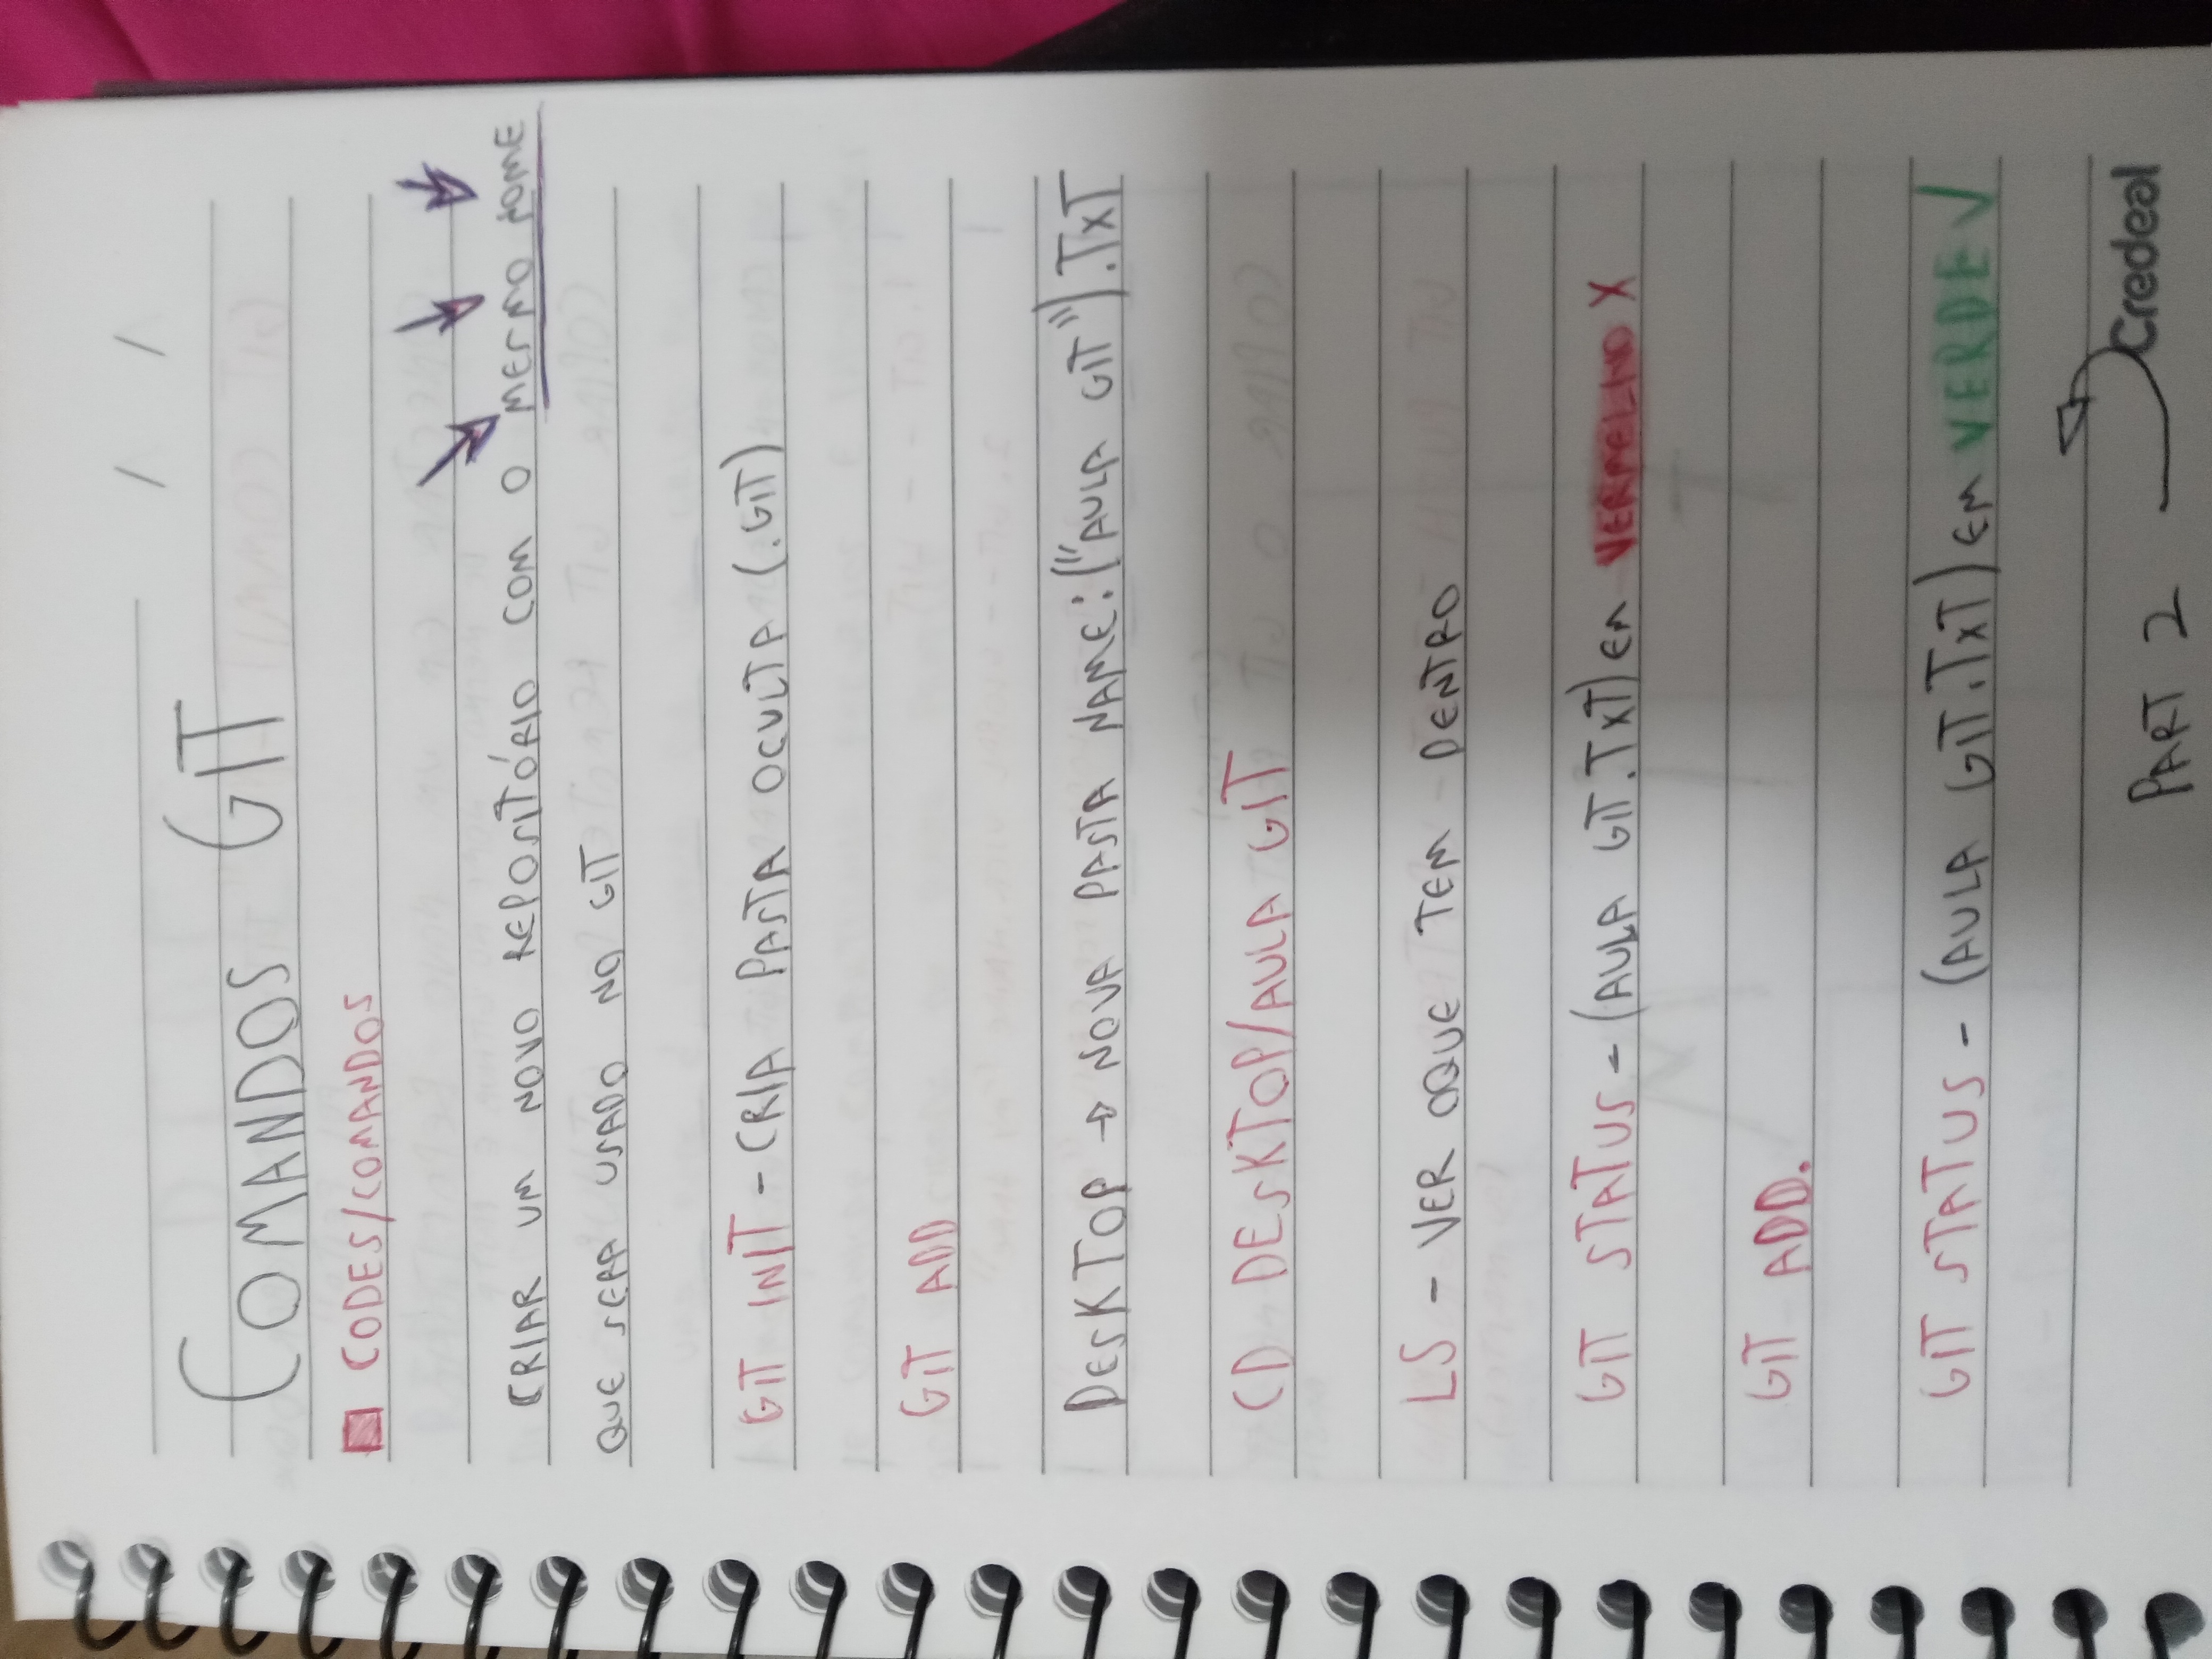 / /
COMANDOS GIT
CODES/COMANDOS
CRIAR UM NOVO REPOSITÓRIO COM O MESMO NOME
QUE SERA USADO NO GIT
GIT INIT - CRIA PASTA OCULTA (.GIT)
GIT ADD
DESKTOP → NOVA PASTA NAME: ("AULA GIT").TXT
CD DESKTOP/AULA GIT
LS - VER OQUE TEM DENTRO
GIT STATUS - (AULA GIT.TXT) EM VERMELHO X
GIT ADD.
GIT STATUS - (AULA GIT.TXT) EM VERDE √
PART 2
Credeal